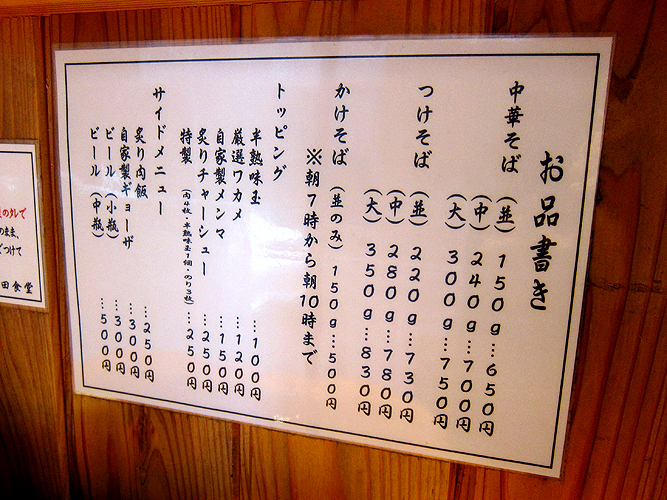 お品書き
中華そば
(並) 150g…650円
(中) 240g…700円
(大) 300g…750円
つけそば
(並) 220g…730円
(中) 280g…780円
(大) 350g…830円
かけそば (並のみ) 150g…500円
※朝7時から朝10時まで
トッピング
半熟味玉 …100円
厳選ワカメ …120円
自家製メンマ …150円
炙りチャーシュー …250円
特製 (肉4枚・半熟味玉1個・のり3枚) …250円
サイドメニュー
炙り肉飯 …250円
自家製ギョーザ …300円
ビール (小瓶) …300円
ビール (中瓶) …500円
のタレで
のまま、
つけて
田食堂